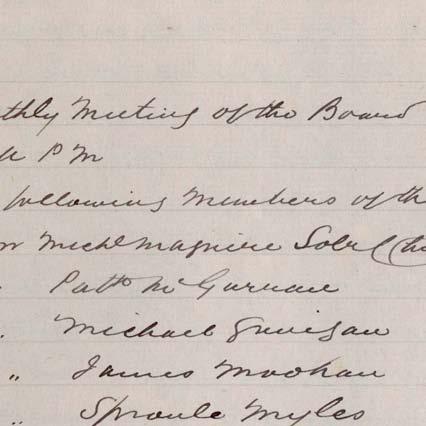 thly Meeting of the Board
PM
following Members of th
Michl Maguire Solr (
Patk McGurran
Michael Gavigan
" James Moohan
" Sproule Myles